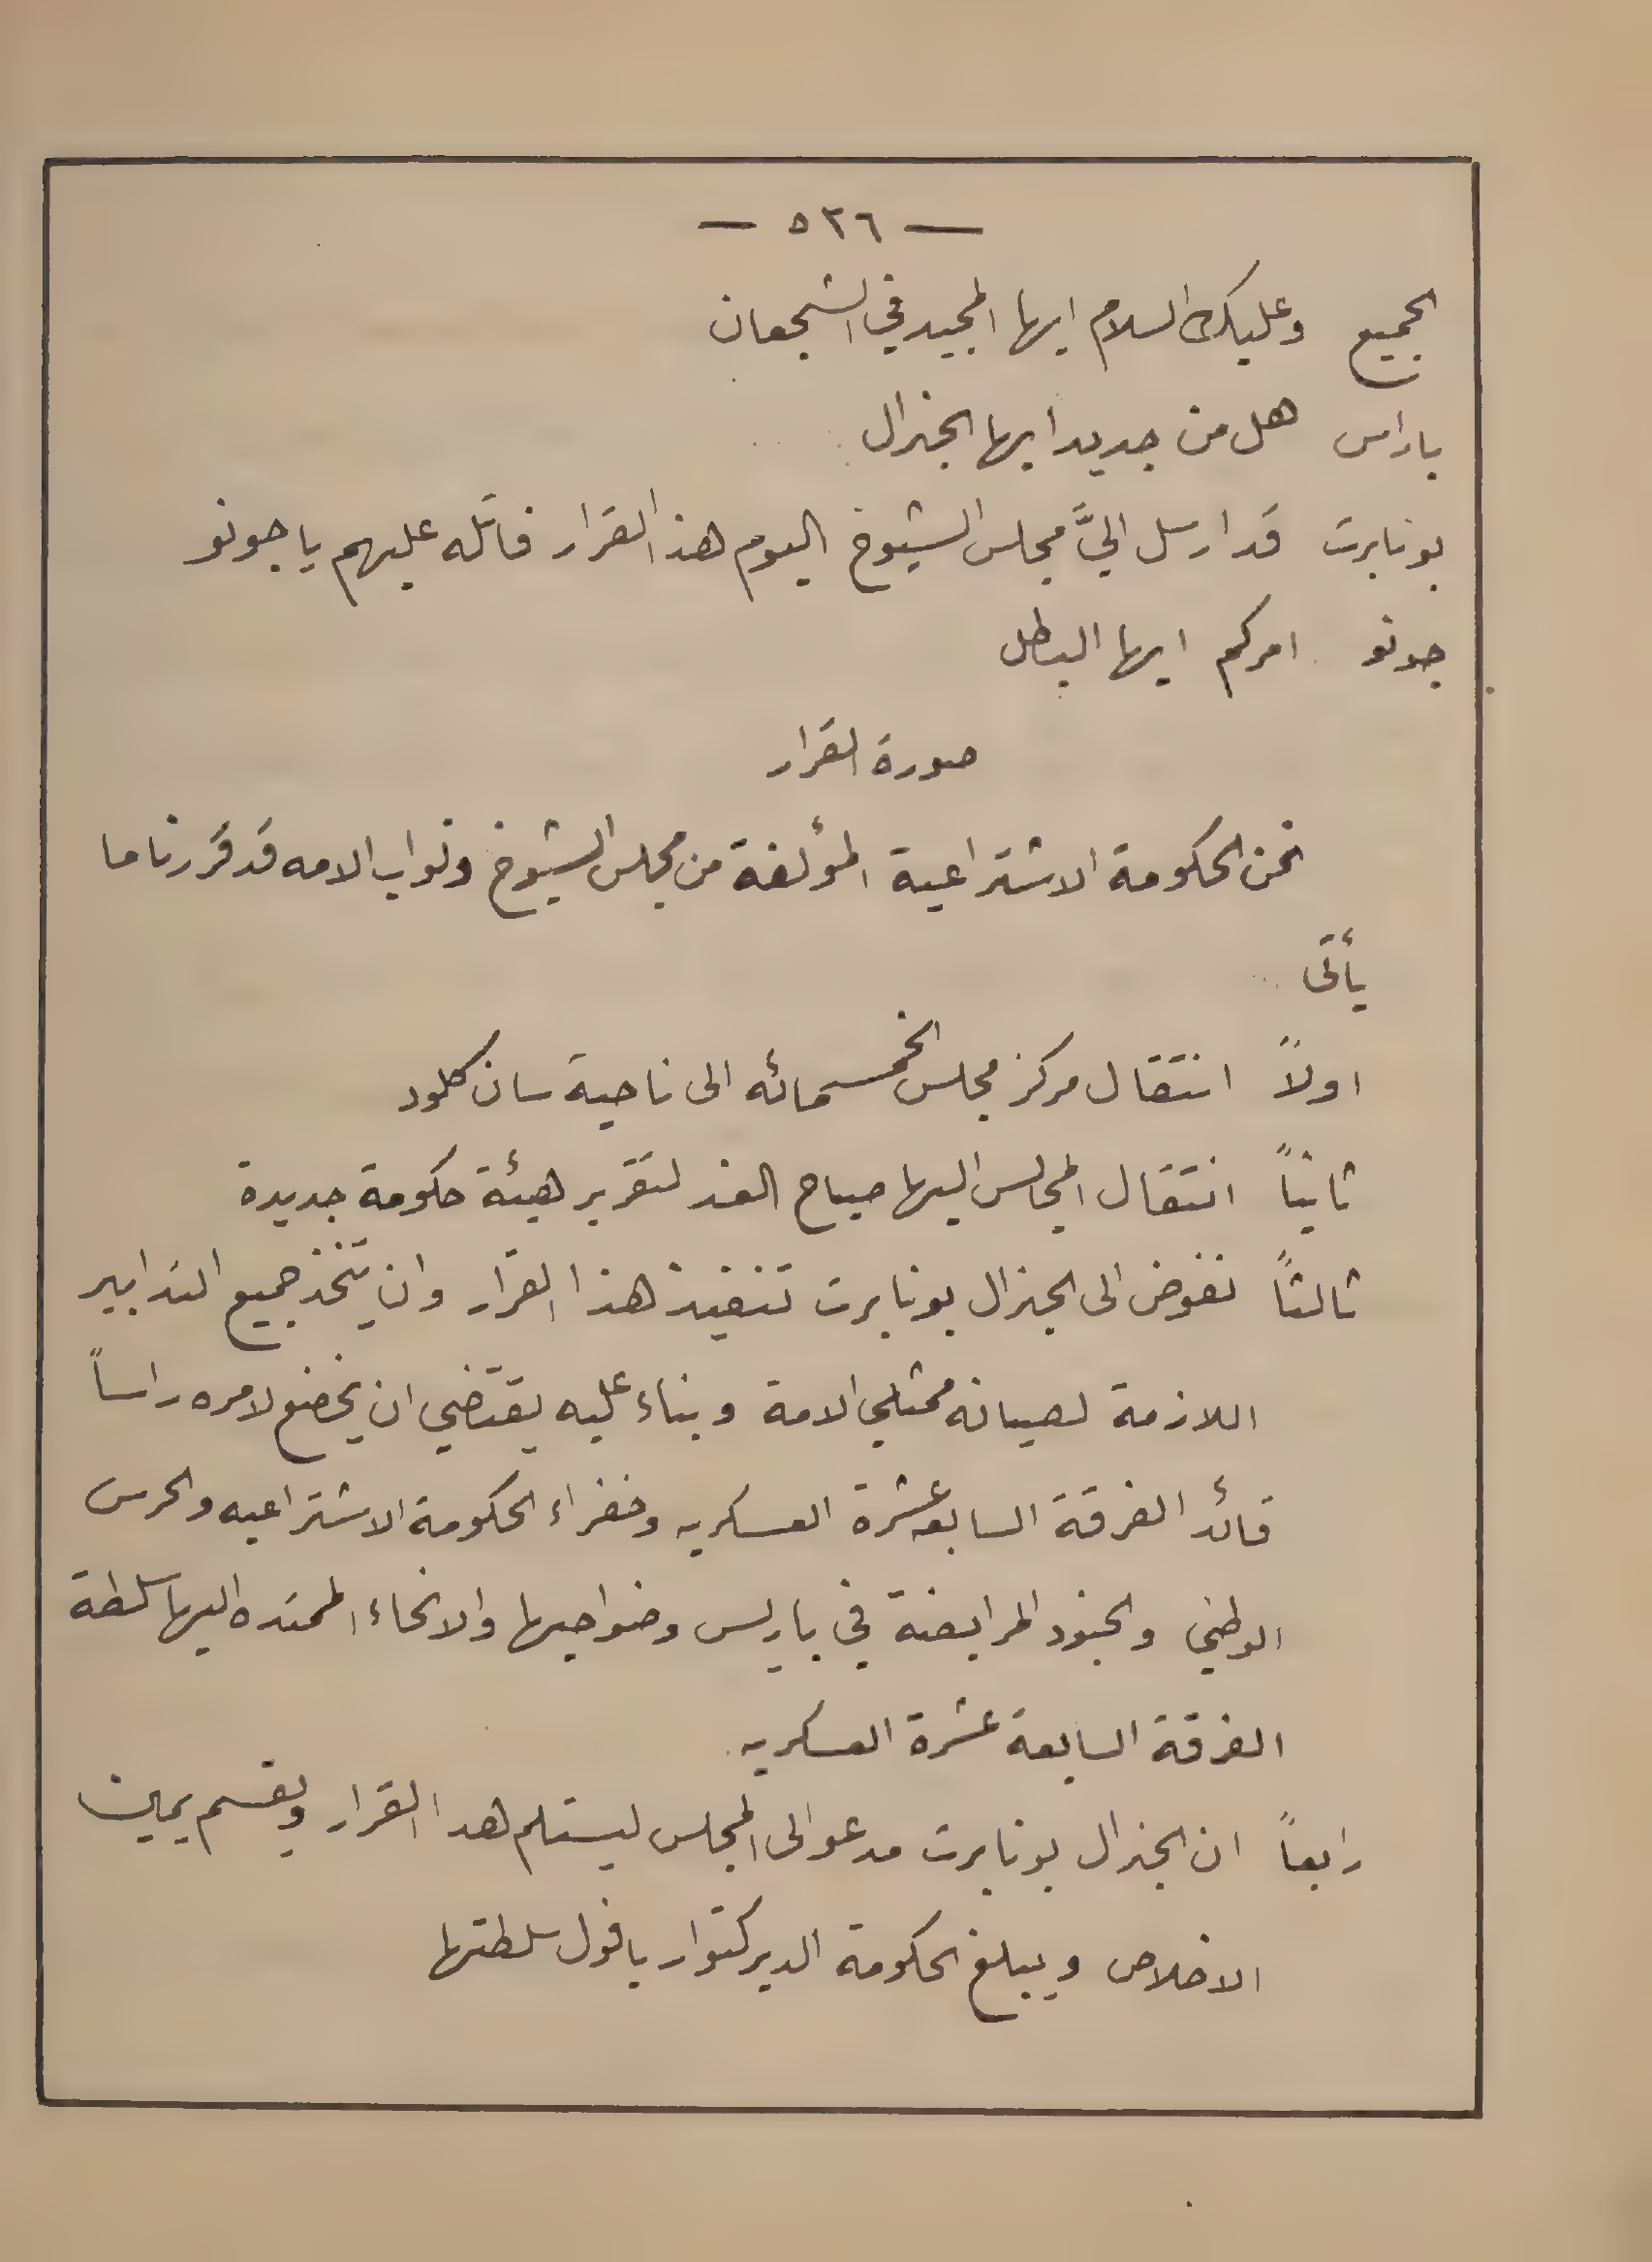 — ٥٣٦ —
الجميع وعليك السلام ايها المجيد في الشجعان
باراس هل من جديد ايها الجنرال
بونابرت قد ارسل اليَّ مجلس الشيوخ اليوم هذا القرار فاتله عليهم يا جونو
جونو امركم ايها البطل
صورة القرار
نحن الحكومة الاشتراعية المؤلفة من مجلس الشيوخ ونواب الامه قد قررنا ما
يأتى
اولاً انتقال مركز مجلس الخمسمائه الى ناحية سان كلود
ثانياً انتقال المجالس اليها صباح الغد لتقرير هيئة حكومة جديدة
ثالثاً نفوض الى الجنرال بونابرت تنفيذ هذا القرار وان يتخذ جميع التدابير
اللازمة لصيانه ممثلي الامة وبناء عليه يقتضي ان يخضع لامره راساً
قائد الفرقة السابعه عشرة العسكريه وخفراء الحكومة الاشتراعيه والحرس
الوطني والجنود المرابضة في باريس وضواحيها والانحاء الممتده اليها سلطة
الفرقة السابعة عشرة العسكريه
رابعاً ان الجنرال بونابرت مدعو الى المجلس ليستلم هدا القرار ويقسم يمين
الاخلاص ويبلغ الحكومة الديركتوار بافول سلطتها